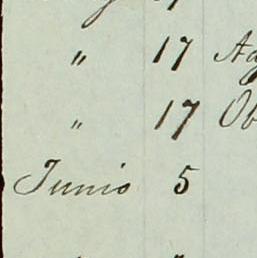 " 17
" 17 Ob
Junio 5